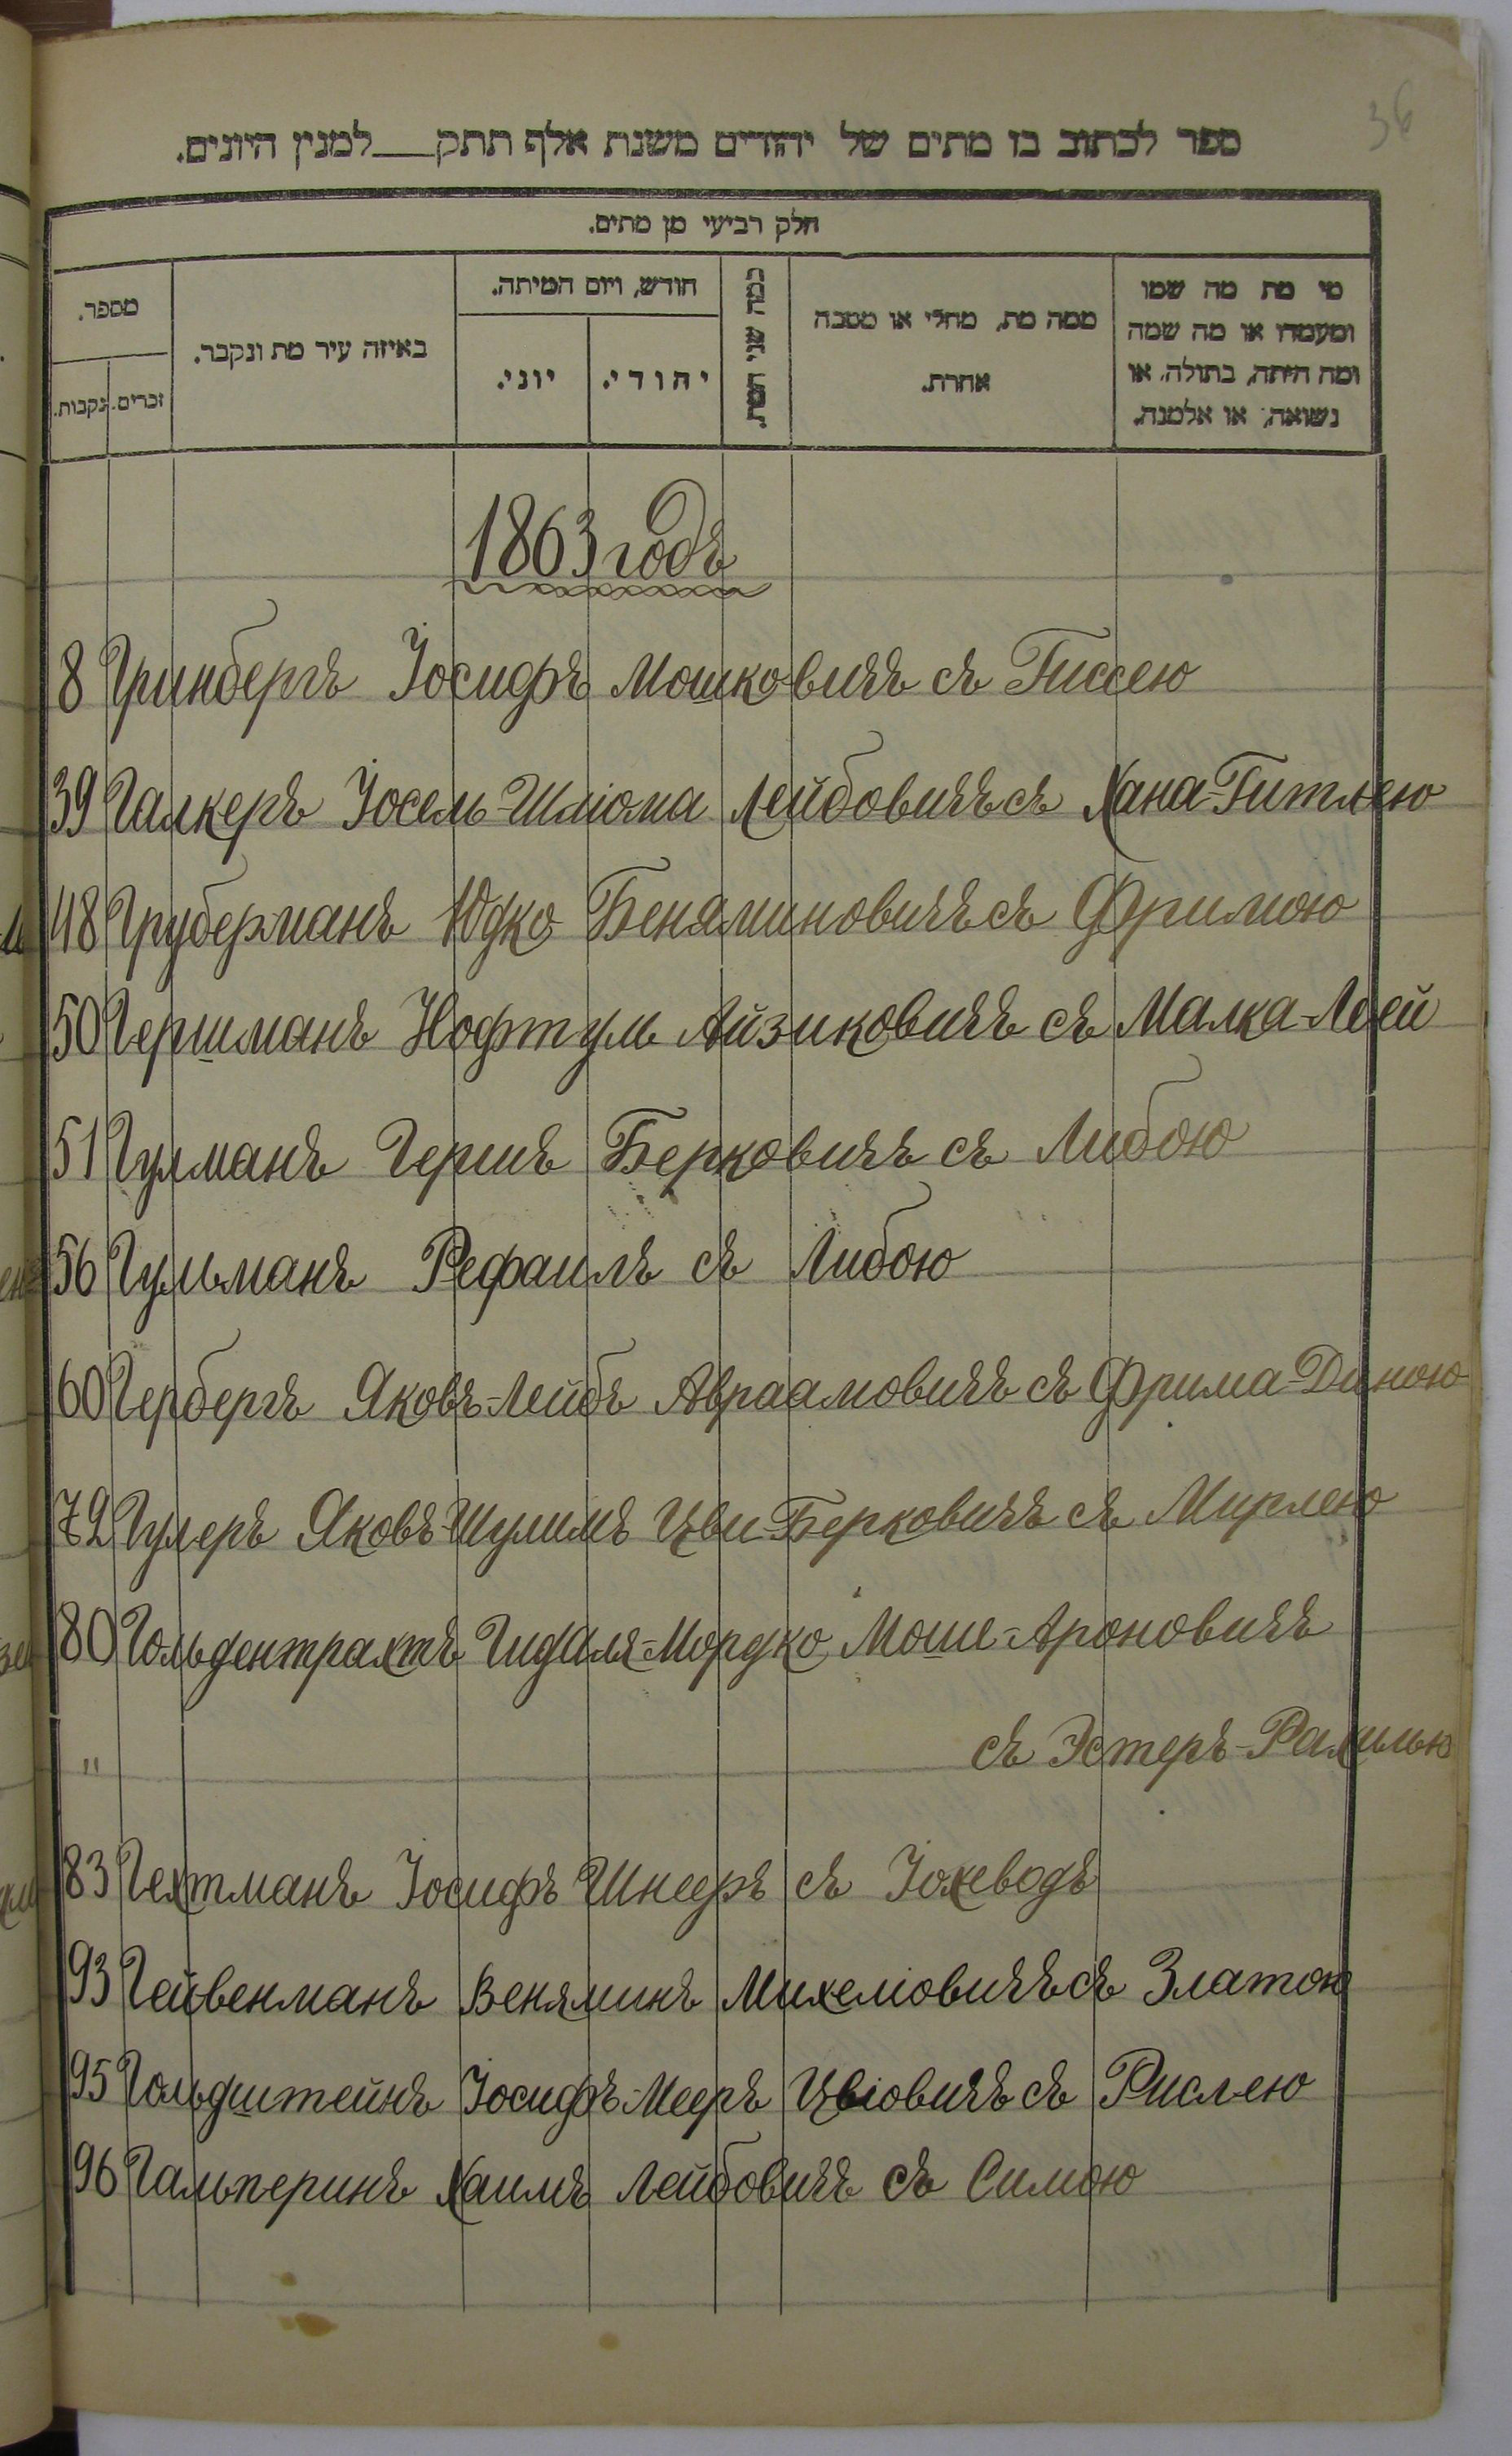 36
ספר לכתוב בו מתים של יהודים משנת אלף תתק___למנין היונים.
חלק רביעי מן מתים.
מי מת מה שמו
ומעמדו או מה שמה
ומה היתה, בתולה, או
נשואה, או אלמנה.
ממה מת, מחלי או מסבה
אחרת.
כמה שני המת.
חודש, ויום המיתה.
יהודי.
יוני.
באיזה עיר מת ונקבר.
מספר.
זכרים.
נקבות.
1863 годъ
8 Гринбергъ Іосифъ Мошковичъ съ Гиссею
39 Галкеръ Іосель-Шліома Лейбовичъ съ Хана-Гитлею
48 Груберманъ Юдко Беняминовичъ съ Фримою
50 Гершманъ Нофтуль Айзиковичъ съ Малка-Леей
51 Гулманъ Гершъ Берковичъ съ Либою
56 Гульманъ Рефаилъ съ Либою
60 Гербергъ Яковъ-Лейбъ Авраамовичъ съ Фрима-Диною
72 Гулеръ Яковъ-Шулимъ Цви-Берковичъ съ Мирлею
80 Гольдентрахтъ Гидаля-Мордко Моше-Ароновичъ
" съ Эстеръ-Рахилью
83 Гехтманъ Іосифъ Шнееръ съ Іохеводъ
93 Гейвенманъ Веняминъ Михеліовичъ съ Златою
95 Гольдштейнъ Іосифъ-Мееръ Цвіовичъ съ Рислею
96 Гальперинъ Хаимъ Лейбовичъ съ Симою